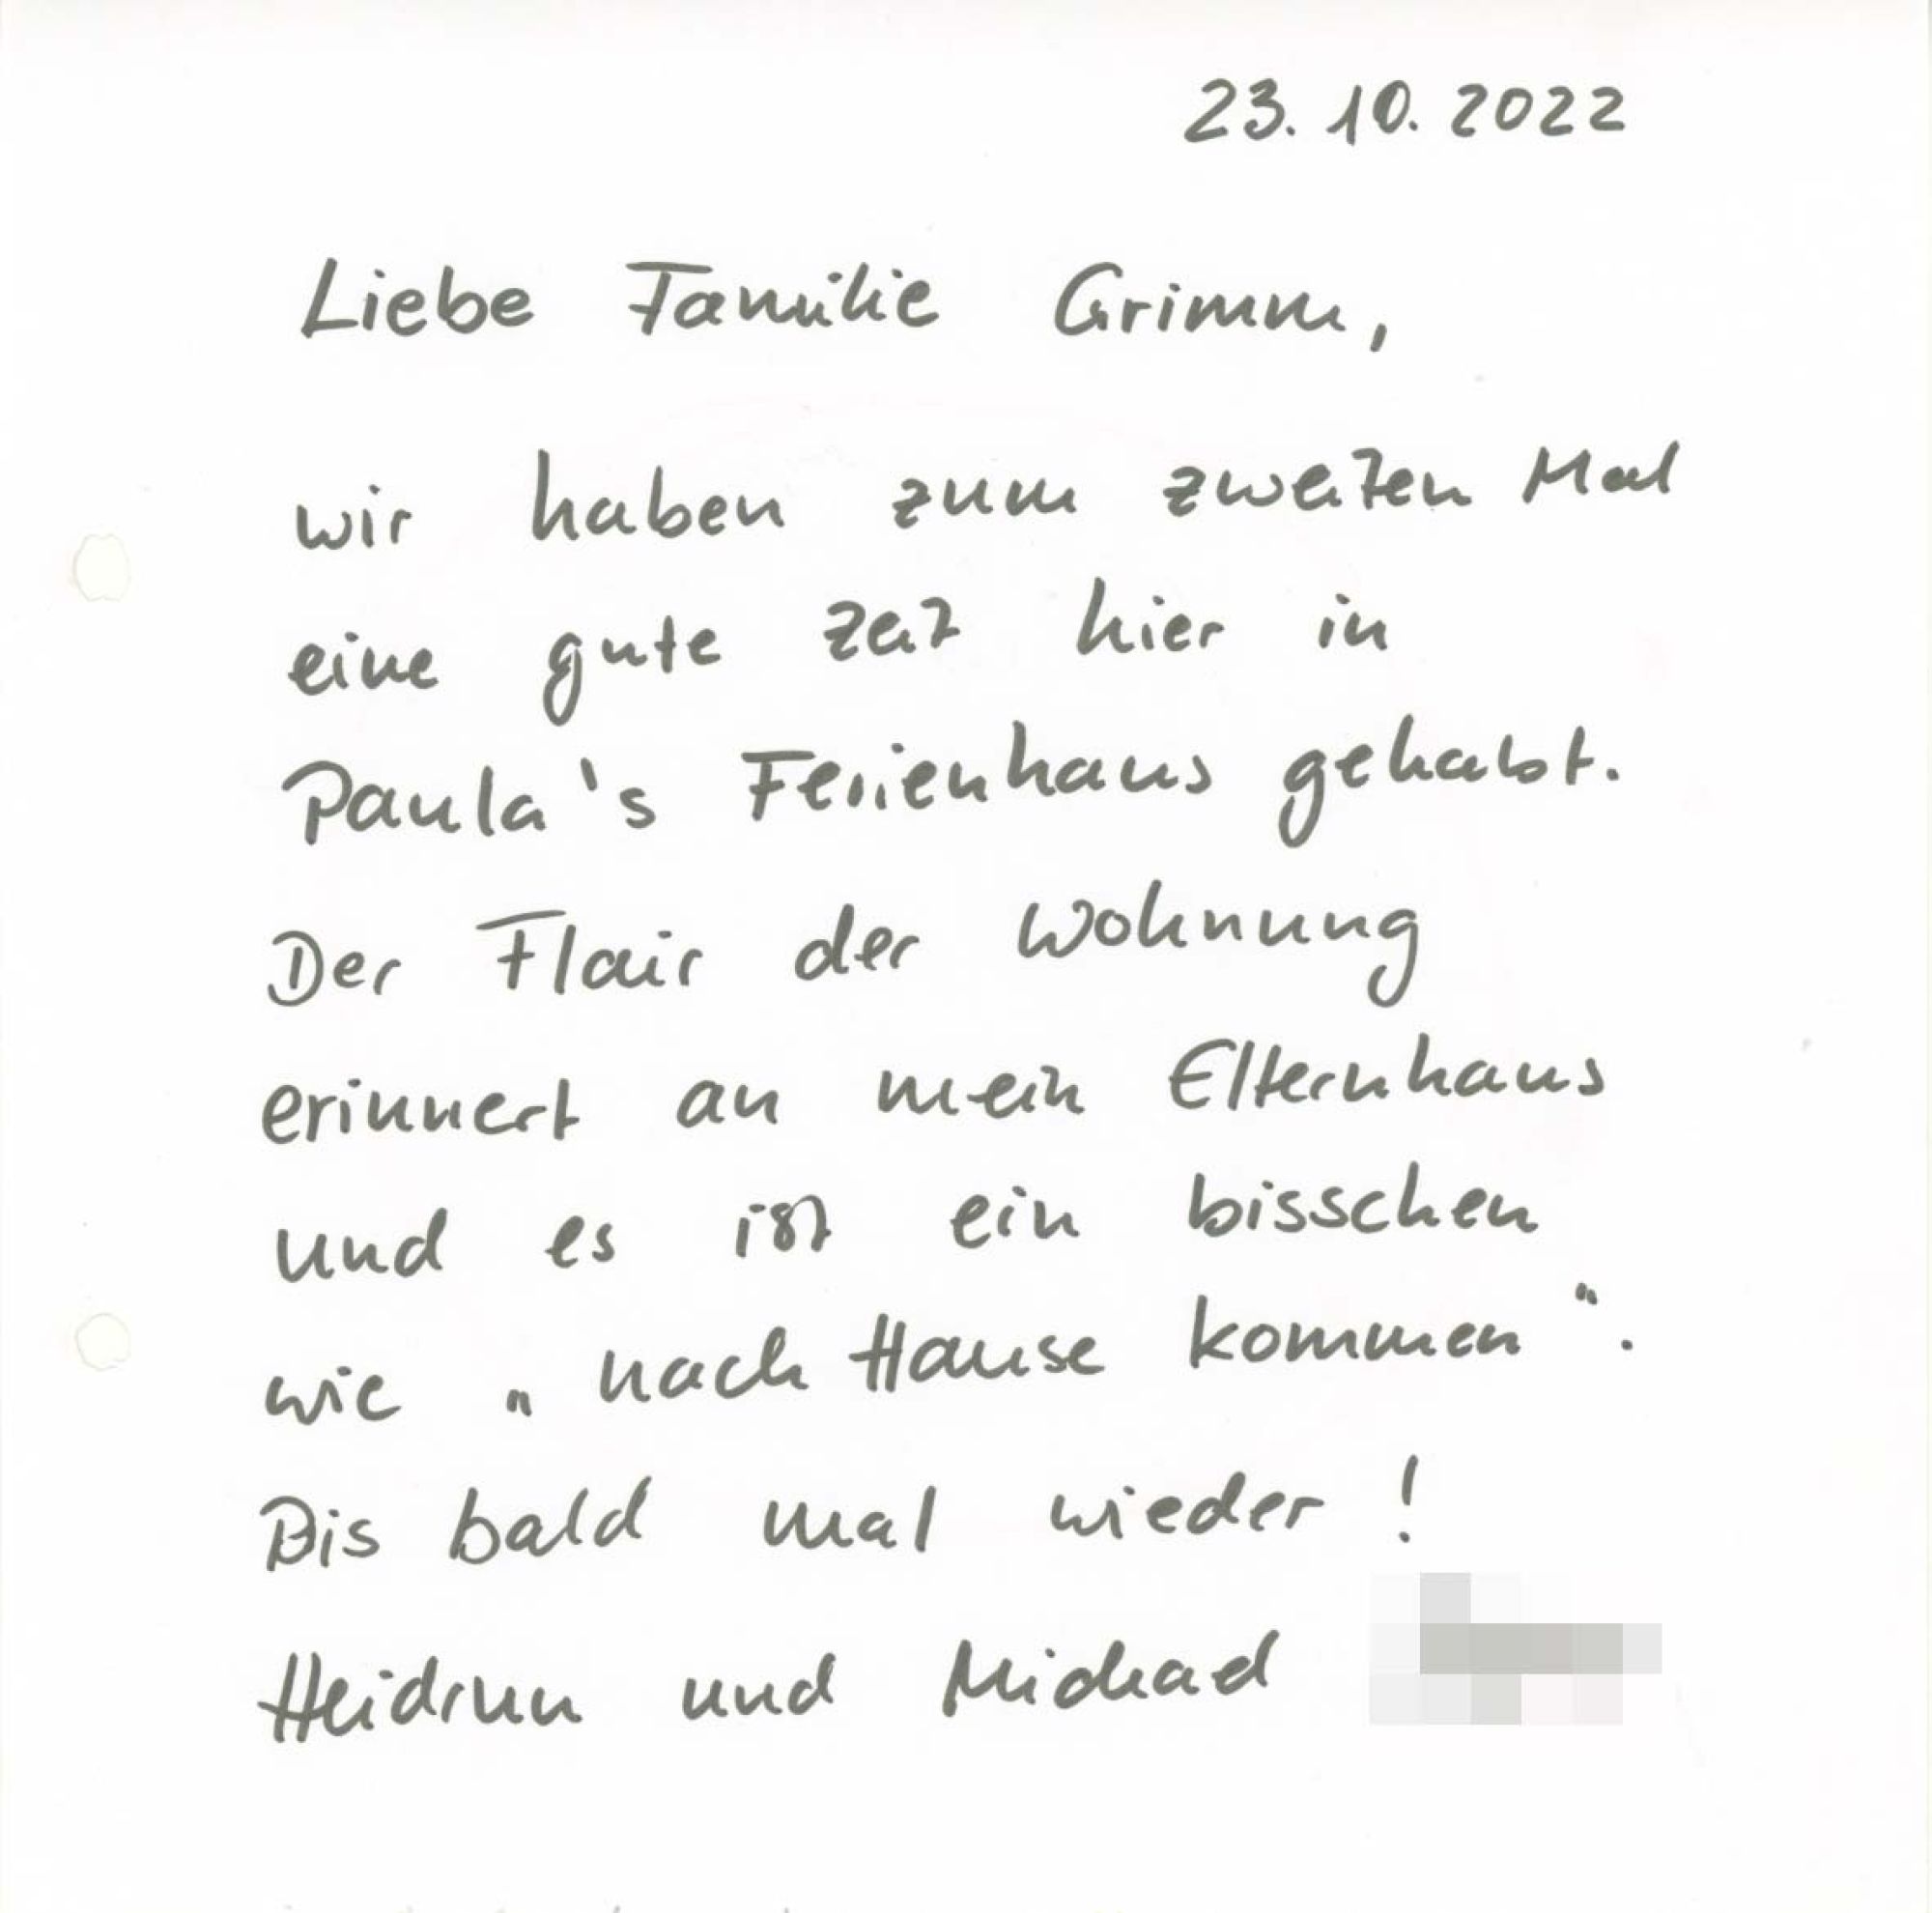 23.10.2022
Liebe Familie Grimm,
wir haben zum zweiten Mal
eine gute Zeit hier in
Paula's Ferienhaus gehabt.
Der Flair der Wohnung
erinnert an mein Elternhaus
und es ist ein bisschen
wie „nach Hause kommen".
Bis bald mal wieder!
Heidrun und Michael